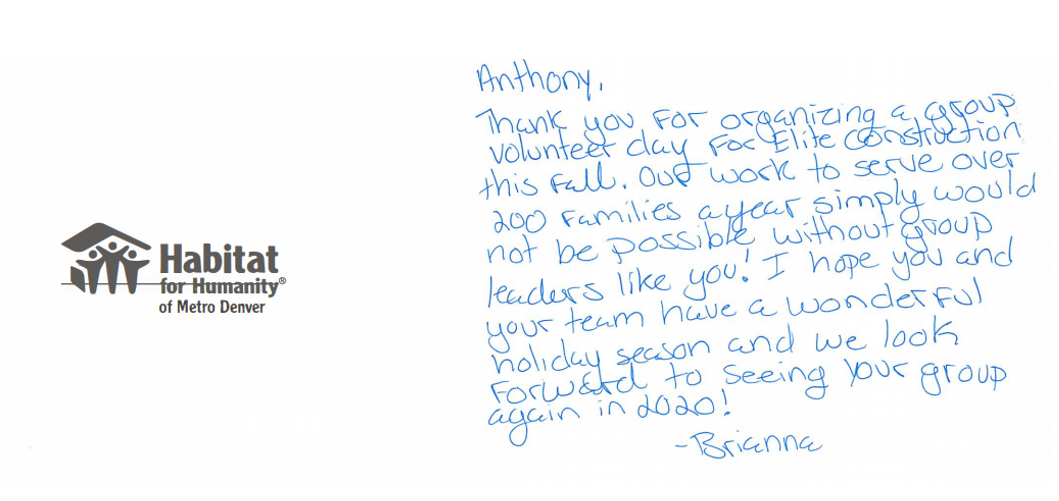 Habitat
for Humanity®
of Metro Denver
Anthony,
Thank you for organizing a group
volunteer day for Elite Construction
this fall. Our work to serve over
200 families a year simply would
not be possible without group
leaders like you! I hope you and
your team have a wonderful
holiday season and we look
forward to seeing your group
again in 2020!
-Brianna